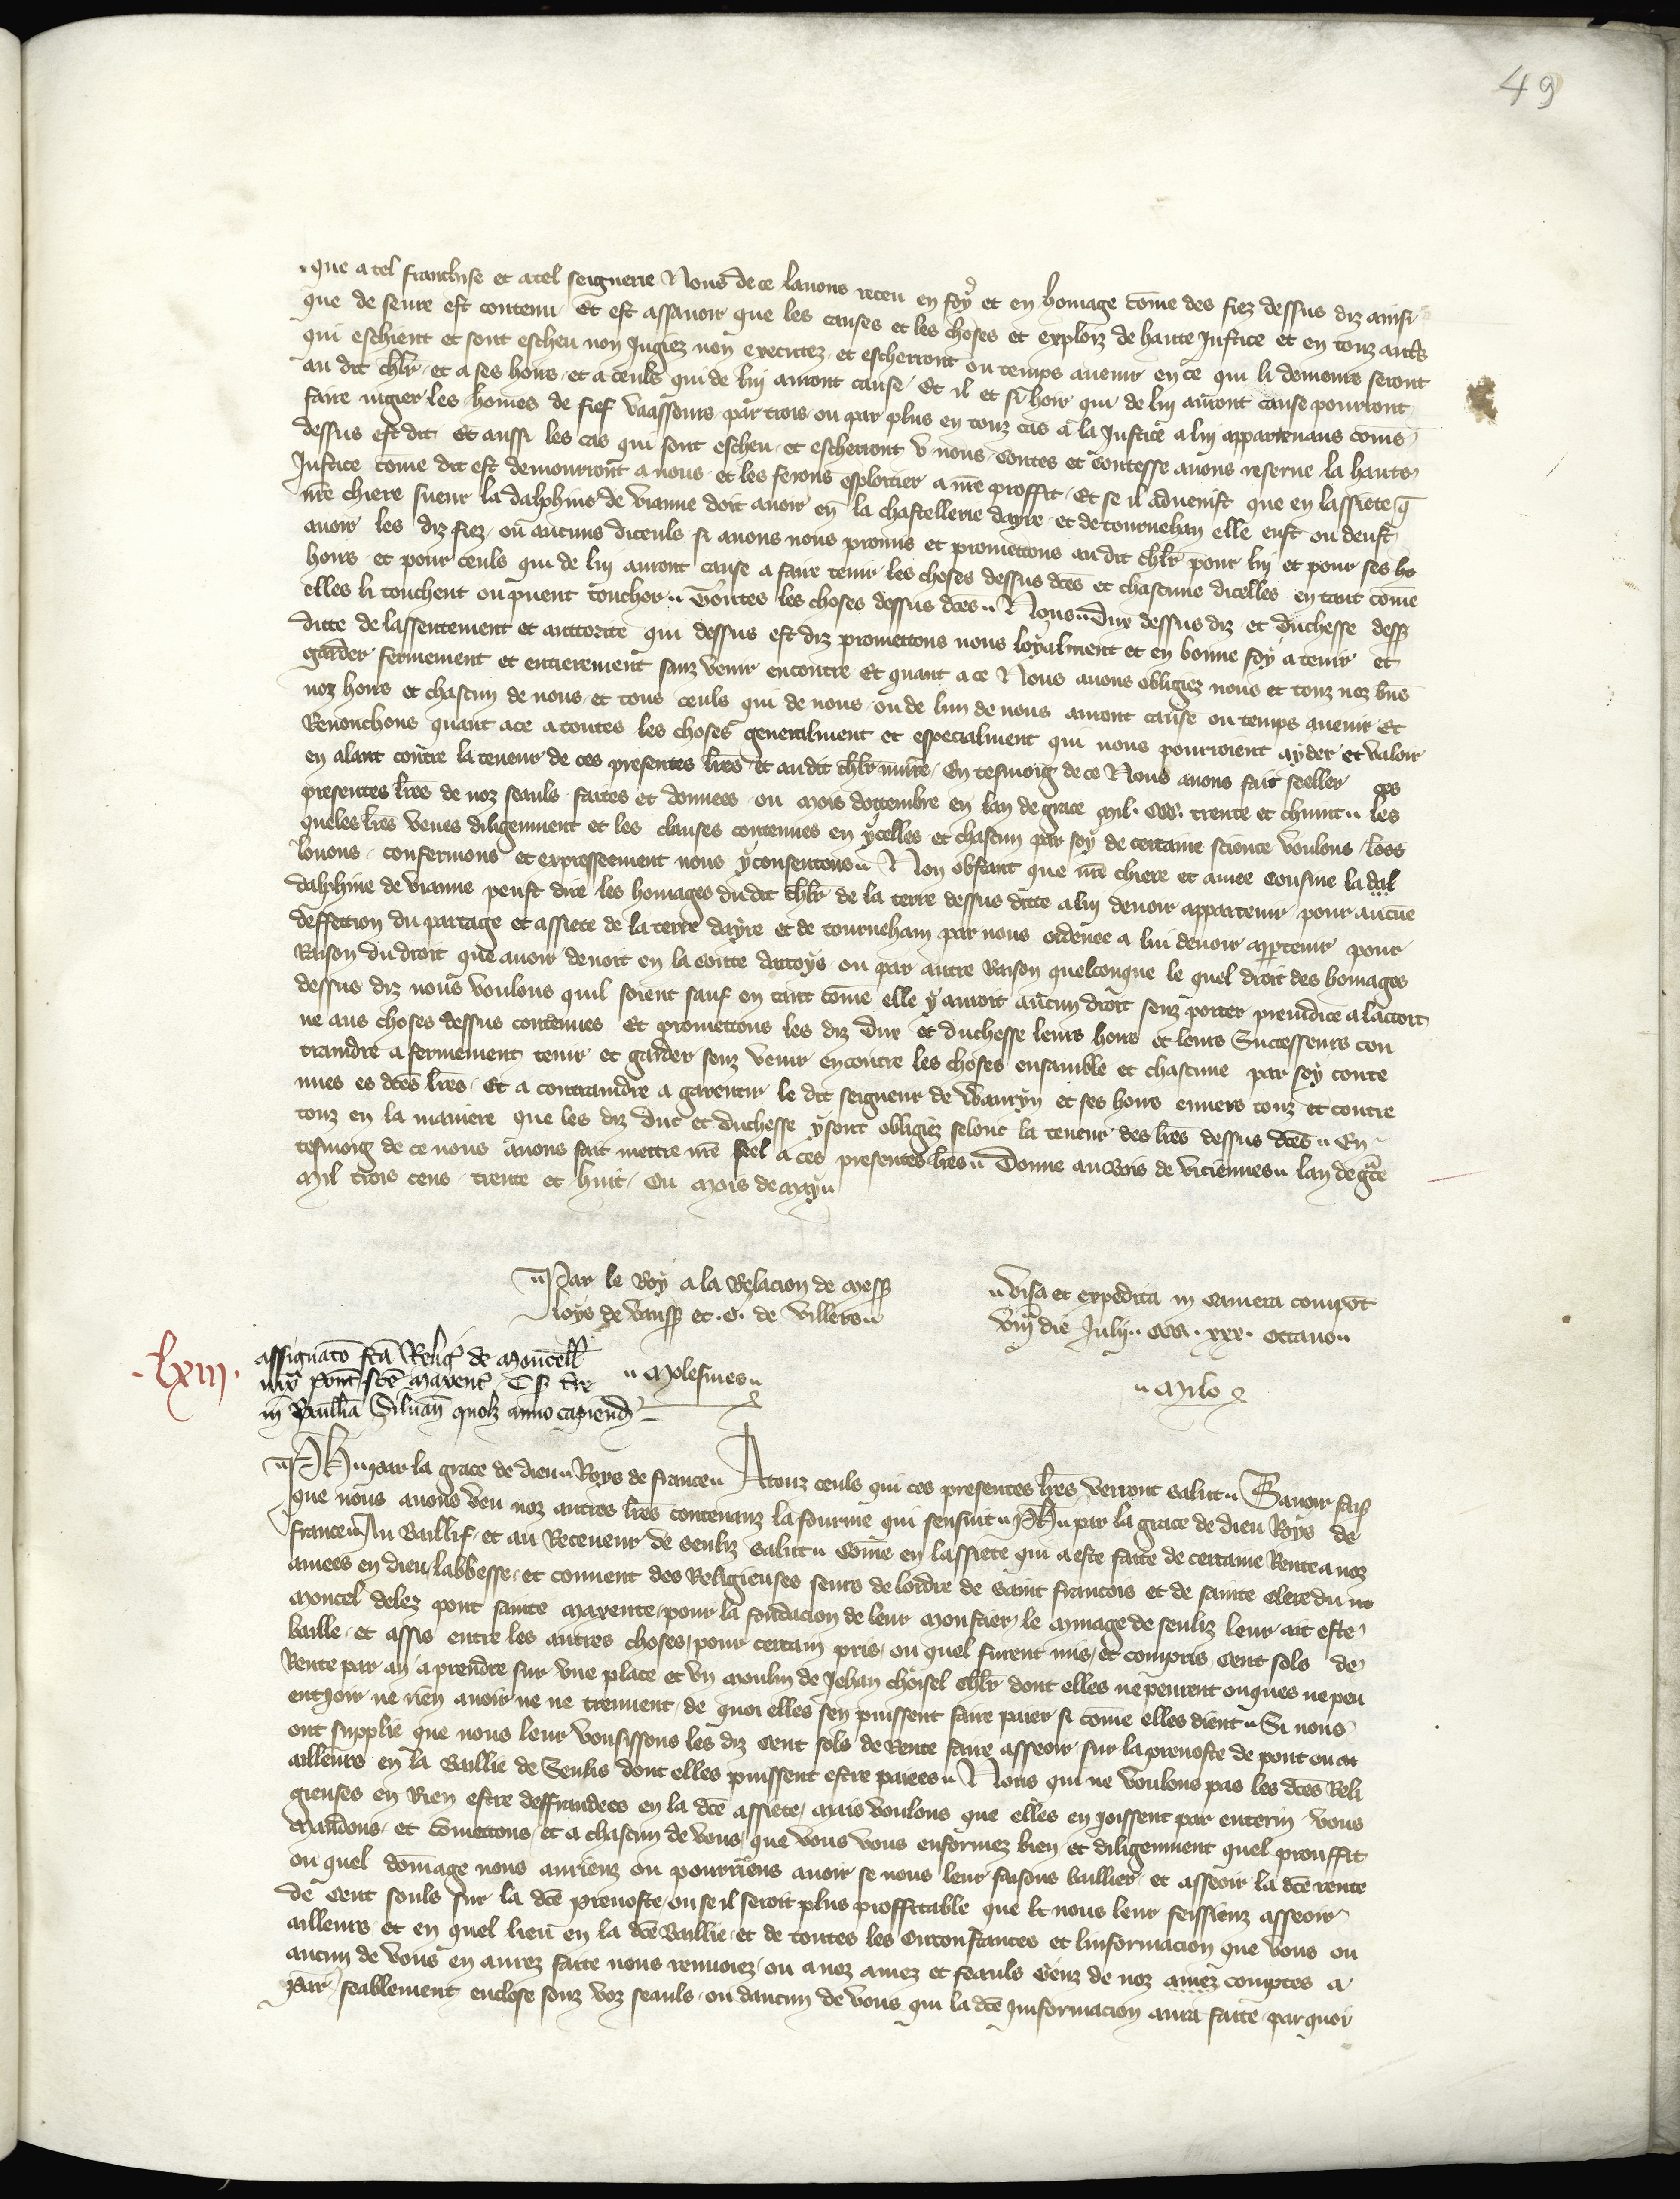 49
que a tel franchise et a tel seignerie Nous de ce lavons receu en foy et en homage come des fiez dessus diz ainsi
que de seure est contenu Et est assavoir que les causes et les choses et exploiz de haute Justice et en touz autres
qui eschient et sont escheu non Jugiez non executez et escherront ou temps avenir en ce qui li demeure seront
au dit chlr et a ses hoirs et a ceuls qui de lui auront cause Et il et si hoir qui de lui auront cause pourront
faire jugier les homes de fief vaassours par trois ou par plus en touz cas a la Justice a lui appartenans come
dessus est dit Et aussi les cas qui sont escheu et escherront u nous Contes et Contesse avons reserve la haute
Justice come dit est demourront a nous et les ferons esploitier a nre proffit Et se il advenist que en lassiete q
nre chiere sueur la dalphine de vianne doit avoir en la chastellerie dayre et de tournehan elle eust ou deust
avoir les diz fiez ou aucuns diceuls si avons nous promis et promettons au dit chlr pour lui et pour ses ho
hoirs et pour ceuls qui de lui auront cause a faire tenir les choses dessus dces et chascune dicelles en tant come
elles li touchent ou puent touchor Toutes les choses dessus dces Nous Dux dessus diz et duchesse dess
ditte de lassentement et auttorite qui dessus est diz promettons nous loyalment et en bonne foy a tenir et
garder fermement et entierement sanz venir encontre Et quant a ce Nous avons obligiez nous et touz noz bns
noz hoirs et chascun de nous et tous ceuls qui de nous ou de lun de nous auront cause ou temps avenir Et
Renonchons quant a ce a toutes les choses generalment et especialment qui nous pourroient ayder et valoir
en alant contre la teneur de ces presentes lres et au dit chlr nuire En tesmoig de ce Nous avons fait seeller ces
presentes lres de noz seauls faites et donnees ou mois dottembre en lan de grace mil ccc trente et chiunc les
queles lres veues diligenment et les clauses contenues en ycelles et chascun par soy de certaine science voulons loos
louons confermons et expresseement nous y consentons Non obstant que nre chiere et amee cousine la dal
dalphine de vianne peust dire les homages du dit chlr de la terre dessus ditte a lui devoir appartenir pour aucune
deffettion du partage et assiete de la terre dayre et de tourneham par nous ordenee a lui devoir apptenir pour
Raison du droit que avoir devoit en la conte dartoys ou par autre Raison quelconque le quel droit des homages
dessus diz nous voulons quil soient sauf en tant come elle y auroit aucun droit senz porter preiudice a laccort
ne aus choses dessus contenues Et promettons les diz Dux et duchesse leurs hoirs et leurs Successeurs con
traindre a fermement tenir et garder senz venir encontre les choses ensamble et chascune par soy conte
nues es dces lres Et a contraindre a garentir le dit seigneur de Wauryn et ses hoirs envers touz et contre
touz en la maniere que les diz duc et duchesse y sont obligiez selonc la teneur des lres dessus dces En
tesmoig de ce nous avons fait mettre nre seel a ces presentes lres Donne au bois de viciennes lan de gce
mil trois cens trente et huit Ou mois de may
Par le Roy a la Relacion de mess
loys de vauss et .G. de Villers
Molesmes
visa et expedita in camera compot
viii die Julij ccc xxx octavo
Milo
lxiii
assignato fca Relig de moncell
iux pont sce maxent C s tre
in Baillia Silvan quolz anno capiend
Ph par la grace de dieu Roys de france A touz ceuls qui ces presentes lres verront salut Savoir fais
que nous avons veu noz autres lres contenanz la fourme qui sensuit Ph par la grace de dieu Roys de
france Au Baillif et au Receveur de senliz salut Come en lassiete qui a este faite de certaine Rente a noz
amees en dieu labbesse et convent des Religieuses seurs de lordre de saint francois et de sainte clere du no
moncel delez pont sainte maxence pour la fondacion de leur monstier le minage de senliz leur ait este
baille et assis entre les autres choses pour certain pris ou quel furent mis et compris cent sols de
Rente par an a prendre sur une place et un moulin de Jehan choisel chlr dont elles ne peurent onques ne peu
ent joir ne rien avoir ne ne treuvent de quoi elles sen puissent faire paier si come elles dient Si nous
ont supplie que nous leur vousissons les diz cent sols de Rente faire asseoir sur la prevoste de pont ou at
ailleurs en la Baillie de Senlis dont elles puissent estre paiees Nous qui ne voulons pas les dces Reli
gieuses en Rien estre deffraudees en la dce assiete mais voulons que elles en joissent par enterin vous
mandons et comettons et a chascun de vous que vous vous enformez bien et diligenment quel prouffit
ou quel domage nous auriens ou pourriens avoir se nous leur faisons baillier et asseoir la dce rente
de cent souls sur la dce prevoste ou se il seroit plus proffitable que le nous leur feissienz asseoir
ailleurs et en quel lieu en la dce Baillie et de toutes les circonstances et linformacion que vous ou
aucun de vous en aurez faite nous renvoiez ou a noz amez et feauls Genz de noz amez comptes a
Par feablement enclose souz voz seauls ou daucun de vous qui la dce Jnformacion aura faite par quoi